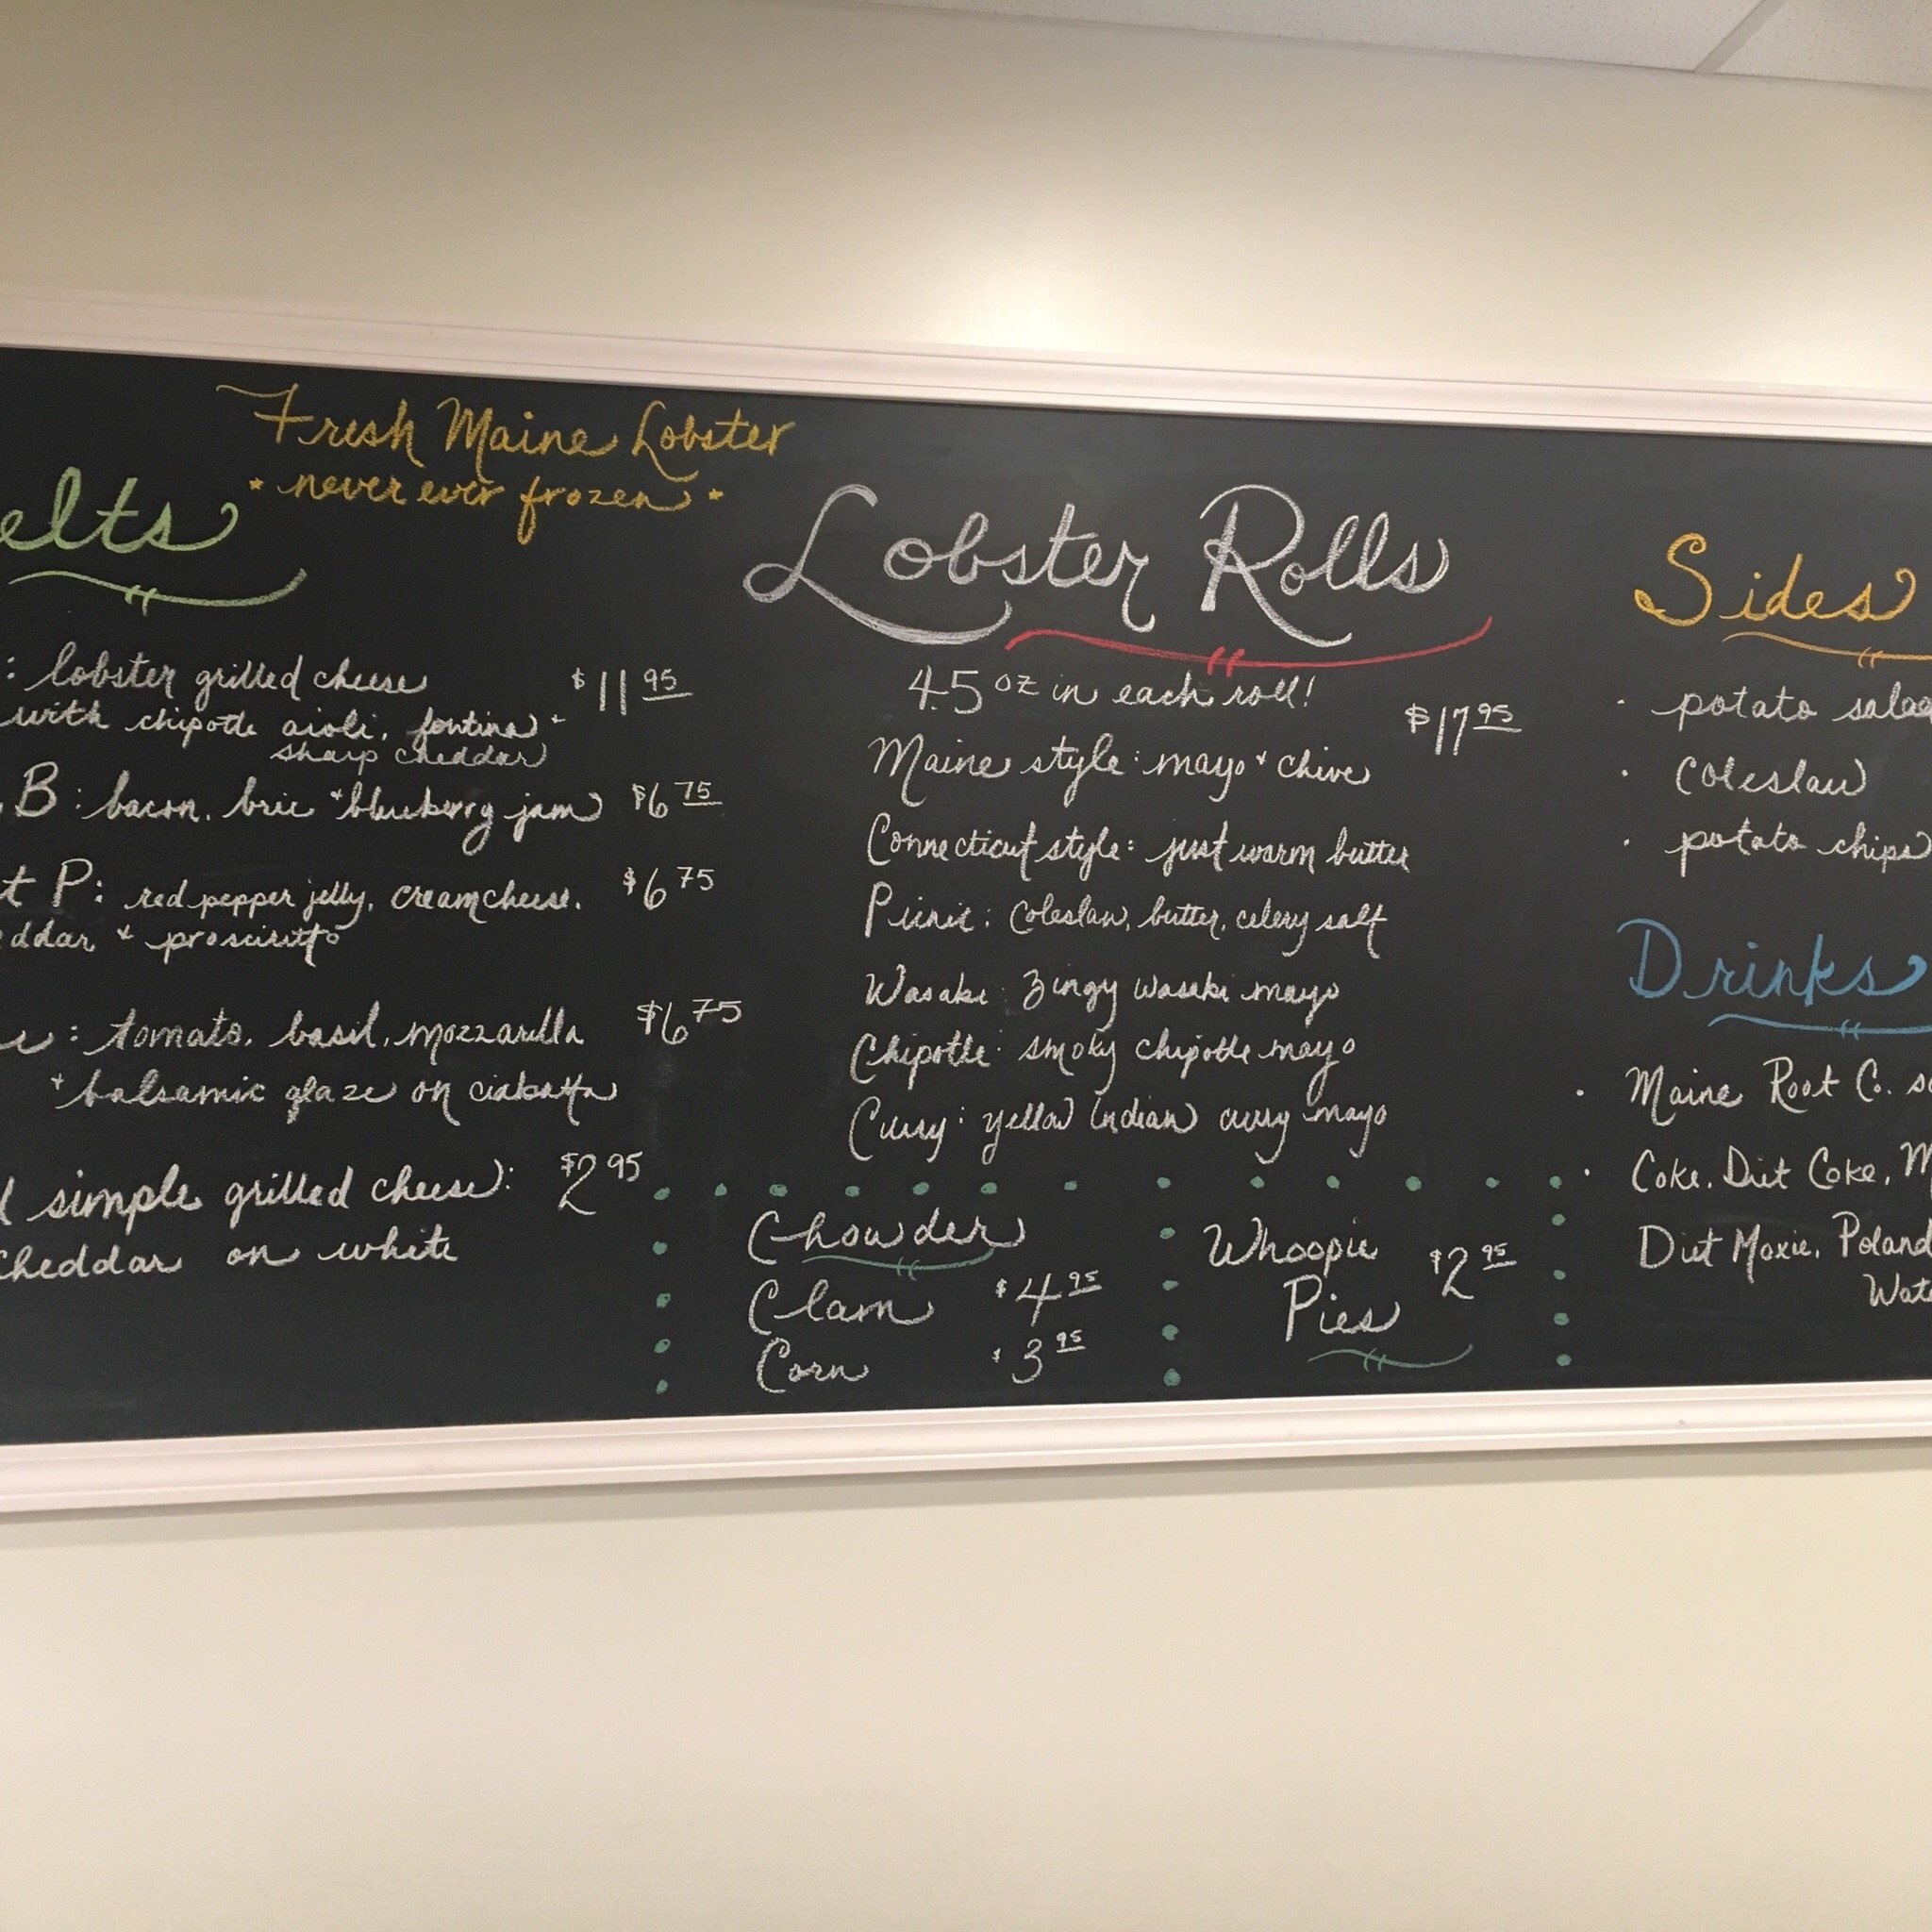 Fresh Maine Lobster
* never ever frozen *
elts
: lobster grilled cheese $11 95
with chipotle aioli, fontina +
sharp cheddar
B: bacon, brie + blueberry jam $6 75
t P: red pepper jelly, cream cheese, $6 75
eddar + prosciutto
: tomato, basil, mozzarella $6 75
+ balsamic glaze on ciabatta
simple grilled cheese: $2 95
cheddar on white
Lobster Rolls
4.5 oz in each roll!
$17 95
Maine style: mayo + chive
Connecticut style: just warm butter
Picnic: coleslaw, butter, celery salt
Wasabi: zingy wasabi mayo
Chipotle: smoky chipotle mayo
Curry: yellow Indian curry mayo
Chowder
Clam $4 95
Corn $3 95
Whoopie
Pies $2 95
Sides
· potato sala
· Coleslaw
· potato chips
Drinks
· Maine Root Co. so
· Coke, Diet Coke, M
Diet Moxie, Poland
Wate